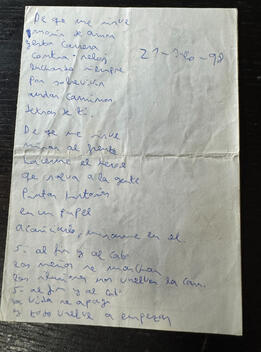 De que me sirve
morir de amor
tanta carrera
contra reloj
luchando siempre
por sobrevivir
andar caminos
detras de ti.
21-      -98
De que me sirve
mirar al frente
hacerme el heroe
que salva a la gente
pintar historias
en un papel
acariciarlo,            en el.
Si al fin y al cabo
los           se marchan
los           nos vuelven la cara.
Si al fin y al cabo
la vida se apaga
y todo vuelve a empezar